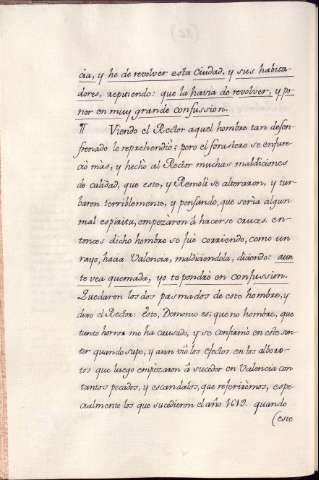 cia, y he de revolver esta Ciudad, y sus habita-
dores, repitiendo: que la havia de revolver, y po-
ner en muy grande confussion.
¶ Viendo el Rector aquel hombre tan desen-
frenado le reprehendiò; pero el forastero se enfure-
ciò màs, y hechò al Rector muchas maldiciones
de calidad, que este, y Remolì se alteraron, y tur-
baron terriblemente, y pensando, que seria algun
mal espiritu, empezaron à hacerse cruces en-
tonces dicho hombre se fuè corriendo, como un
rayo, hacia Valencia, maldiciendola, diciendo: aun
te vea quemada, yo te pondrè en confussion.
Quedaron los dos pasmados de este hombre, y
dixo el Rector: Este, Demonio es; que no hombre, que
tanto horror me ha causado, y se confirmò en este sen-
tir quando supo, y aun viò los efectos en los alboro-
tos que luego empezaron à suceder en Valencia con
tantos pecados, y escandalos, que referirèmos, espe-
cialmente los que sucedieron el año 1619. quando
(este